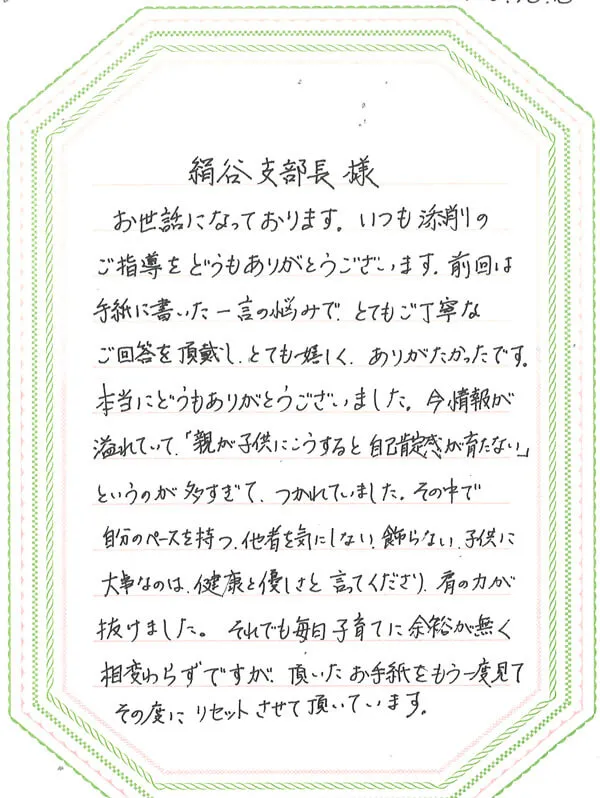 絹谷支部長様
お世話になっております。いつも添削の
ご指導をどうもありがとうございます。前回は
手紙に書いた一言の悩みで、とてもご丁寧な
ご回答を頂戴し、とても嬉しく、ありがたかったです。
本当にどうもありがとうございました。今、情報が
溢れていて、「親が子供にこうすると自己肯定感が育たない」
というのが多すぎて、つかれていました。その中で
自分のペースを持つ、他者を気にしない、飾らない、子供に
大事なのは、健康と優しさと言ってくださり、肩の力が
抜けました。それでも毎日子育てに余裕が無く
相変わらずですが、頂いたお手紙をもう一度見て
その度にリセットさせて頂いています。